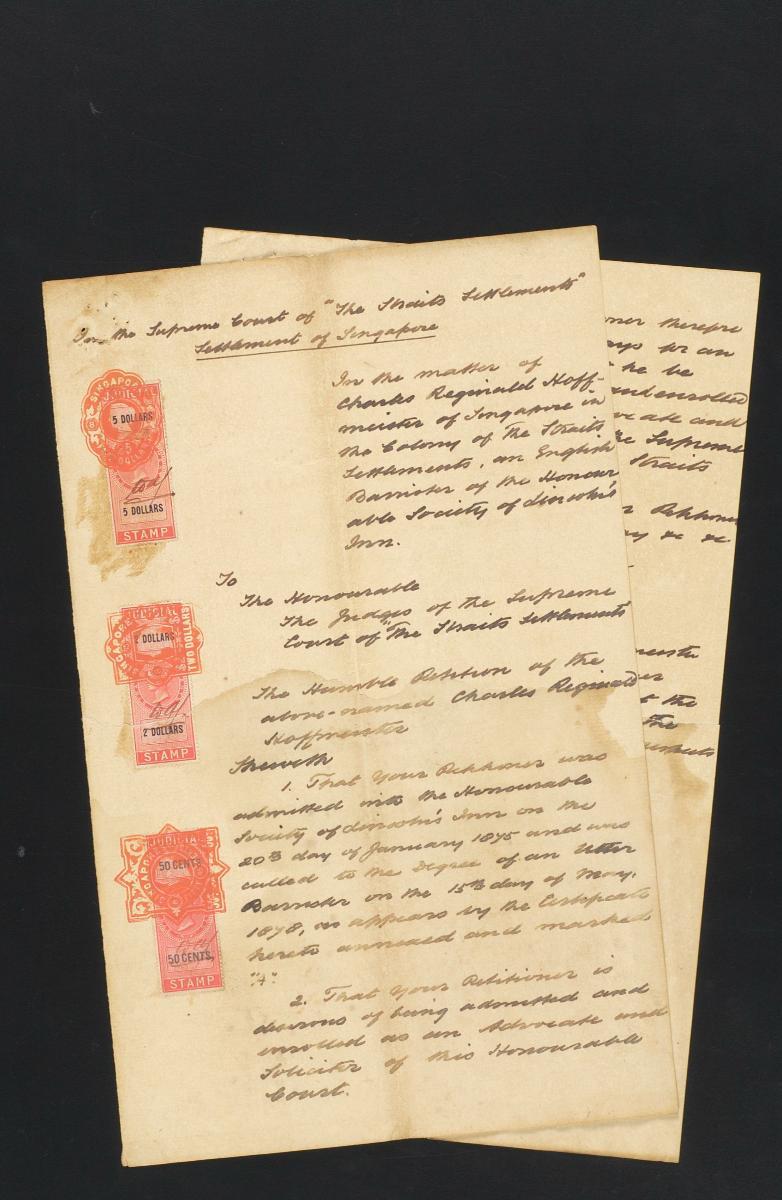 In the Supreme Court of "The Straits Settlements"
Settlement of Singapore
In the matter of
Charles Reginald Hoff-
meister of Singapore in
the Colony of the Straits
Settlements, an English
Barrister of the Honour
able Society of Lincoln's
Inn.
To
The Honourable
The Judges of the Supreme
Court of "The Straits Settlements"
The Humble Petition of the
above-named Charles Reginald
Hoffmeister
Sheweth
1. That Your Petitioner was
admitted into the Honourable
Society of Lincoln's Inn on the
20th day of January 1875 and was
called to the Degree of an Utter
Barrister on the 15th day of May,
1878, as appears by the Certificate
hereto annexed and marked
"A"
2. That Your Petitioner is
desirous of being admitted and
enrolled as an Advocate and
Solicitor of this Honourable
Court.
SINGAPORE
JUDICIAL
5 DOLLARS
5 DOLLARS
STAMP
JUDICIAL
SINGAPORE
TWO DOLLARS
2 DOLLARS
2 DOLLARS
STAMP
JUDICIAL
SINGAPORE
50 CENTS
50 CENTS
STAMP
oner therefore
ays for an
he be
and enrolled
cate and
e Supreme
Straits
r Petitioner
ay &c &c
meister
the
the